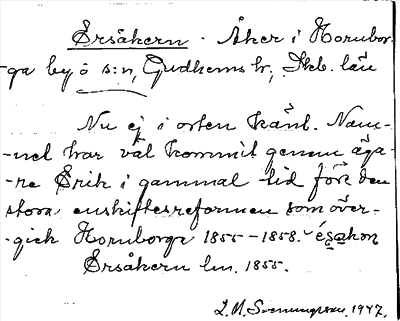 Ersåkern. Åker i Hornbor-
ga by o s:n, Gudhems hr, Skb. län
Nu ej i orten känt. Nam-
-net har väl kommit genom äga-
-re Erik i gammal tid före den
stora enskiftesreformen som över-
-gick Hornborga 1855-1858.
Ersåkern lm. 1855.
1947.